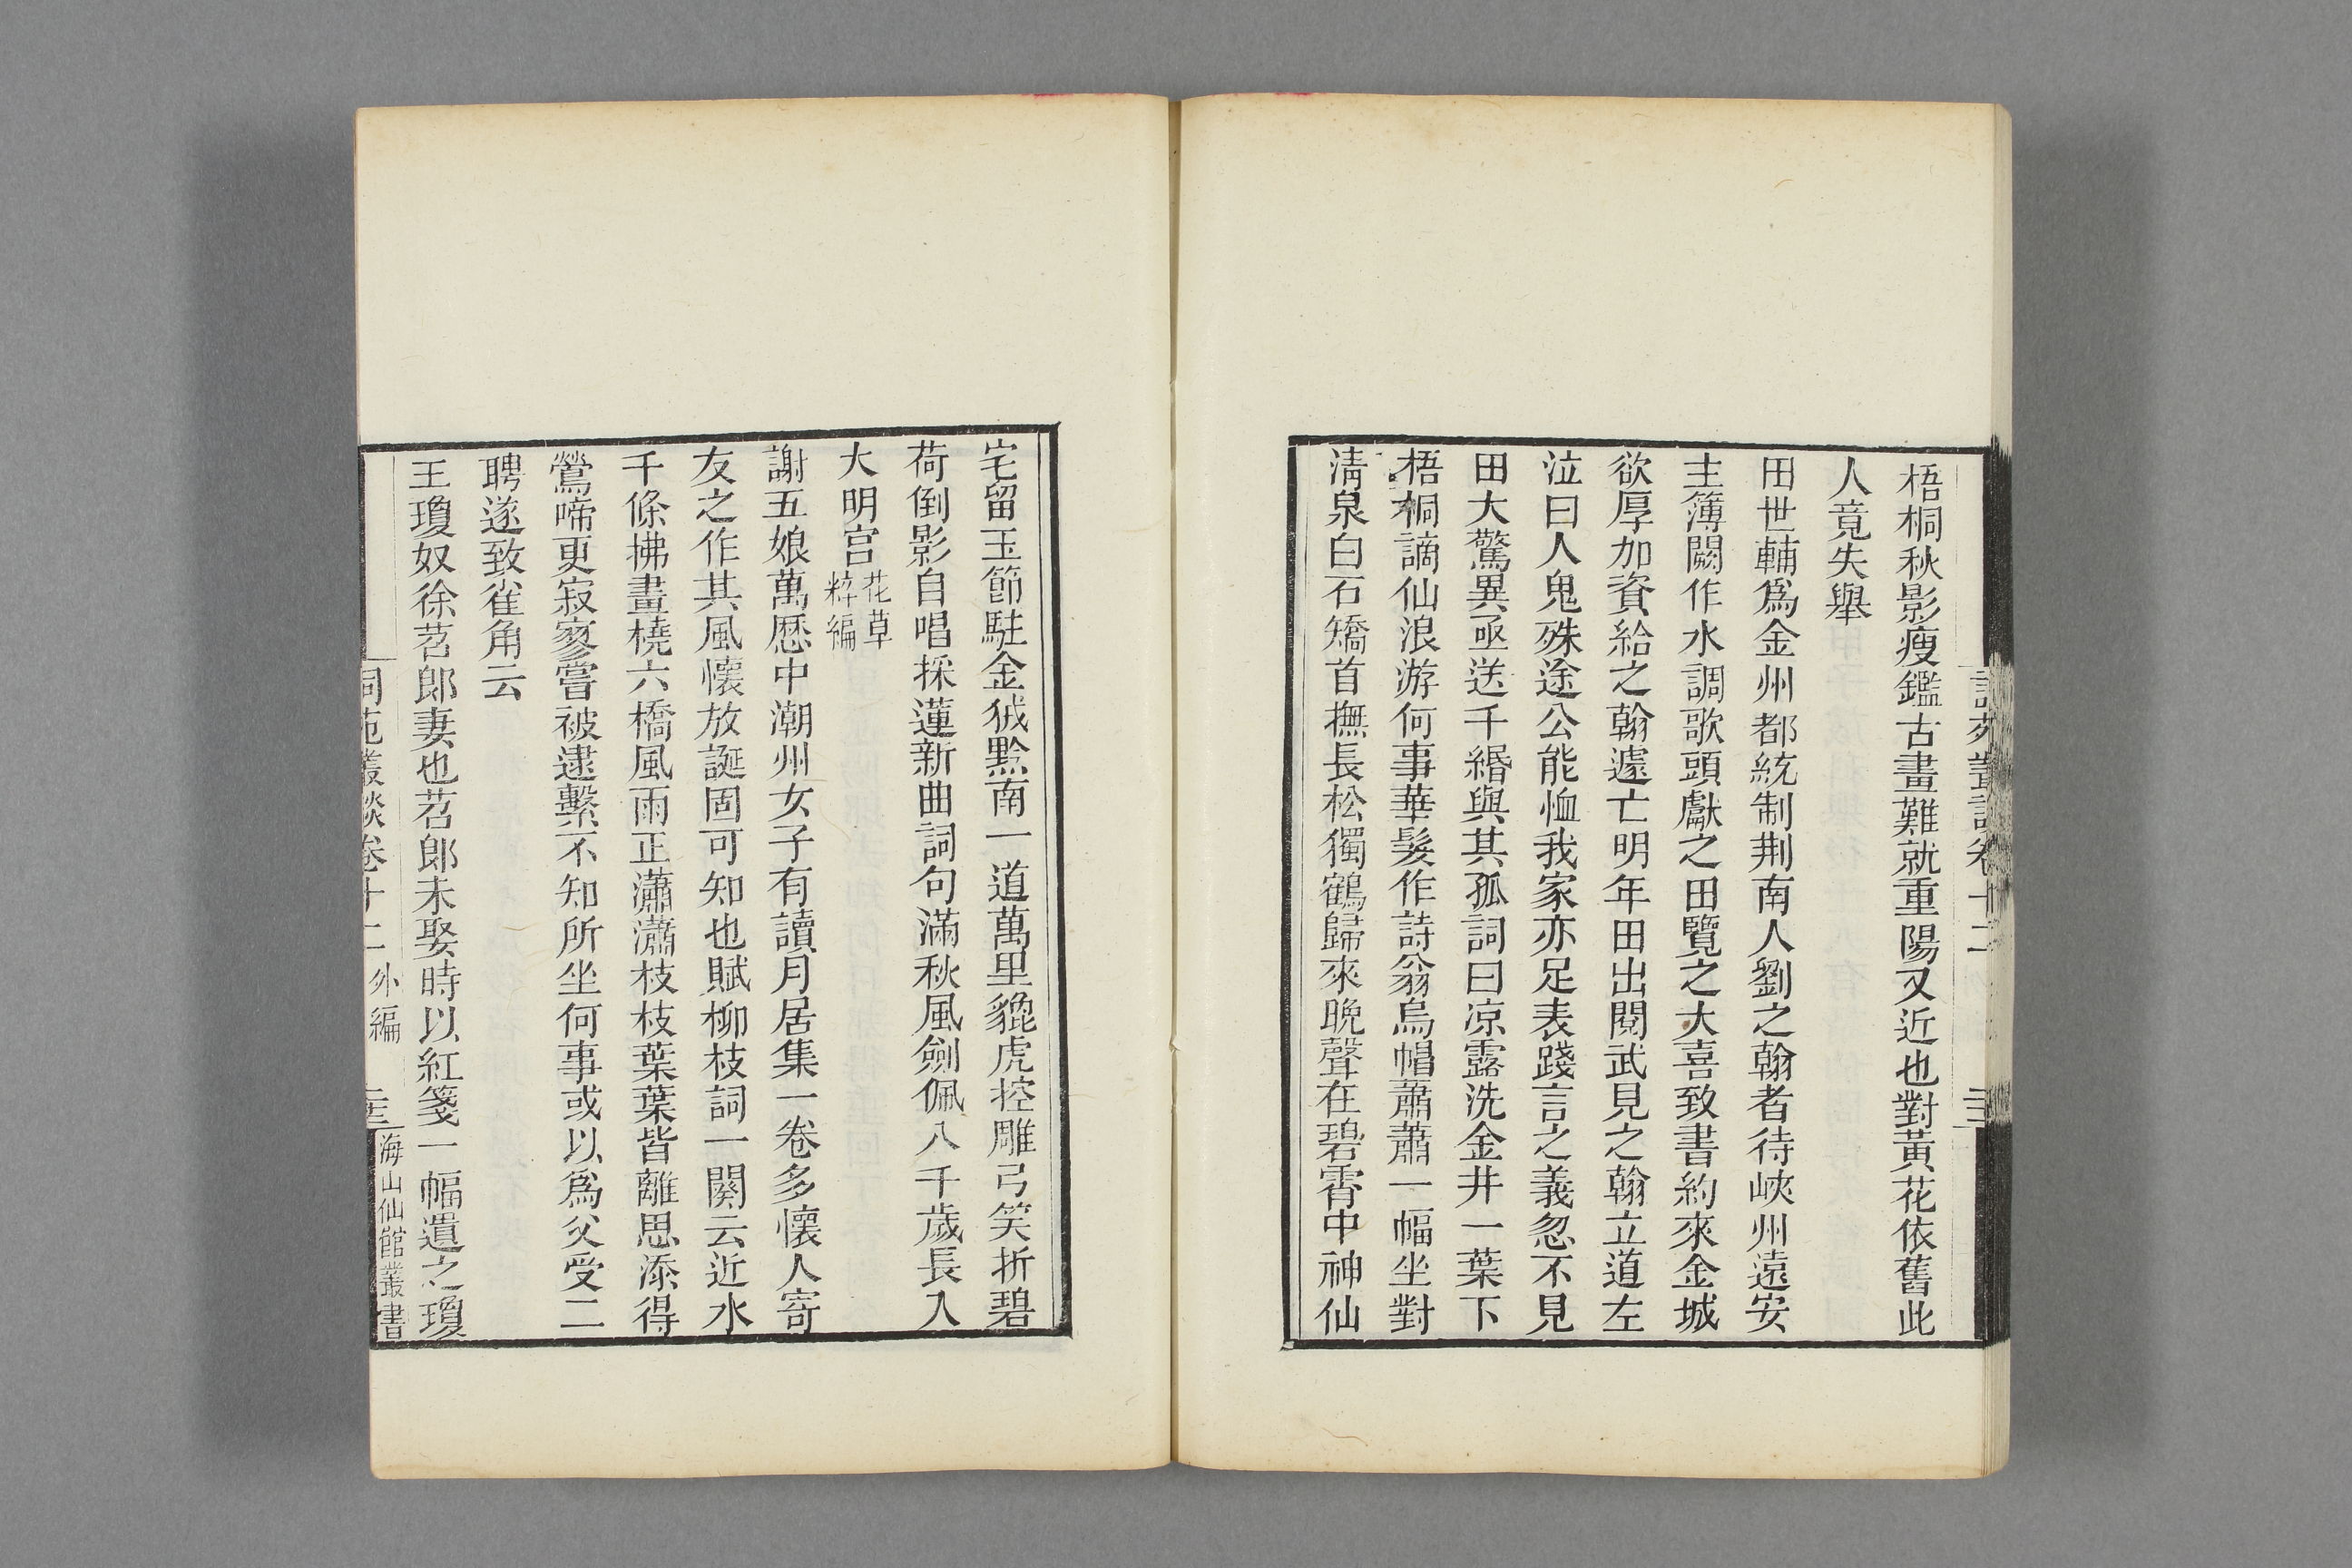 梧桐秋影瘦鑑古畫難就重陽又近也對黃花依舊此
人竟失舉
田世輔爲金州都統制荆南人劉之翰者待峽州遠安
主簿闕作水調歌頭獻之田覽之大喜致書約來金城
欲厚加資給之翰遽亡明年田出閱武見之翰立道左
泣曰人鬼殊途公能恤我家亦足表踐言之義忽不見
田大驚異亟送千緡與其孤詞曰凉露洗金井一葉下
梧桐謫仙浪游何事華髮作詩翁烏帽蕭蕭一幅坐對
淸泉白石矯首撫長松獨鶴歸來晚聲在碧霄中神仙
宅留玉節駐金狨黔南一道萬里貔虎控雕弓笑折碧
荷倒影自唱採蓮新曲詞句滿秋風劍佩八千歲長入
大明宮花草
粹編
謝五娘萬厯中潮州女子有讀月居集一卷多懷人寄
友之作其風懷放誕固可知也賦柳枝詞一闋云近水
千條拂畫橈六橋風雨正瀟瀟枝枝葉葉皆離思添得
鶯啼更寂寥嘗被逮繫不知所坐何事或以爲父受二
聘遂致雀角云
王瓊奴徐苕郞妻也苕郞未娶時以紅箋一幅遺之瓊
詞苑叢談卷十二 外編 三 海山仙館叢書